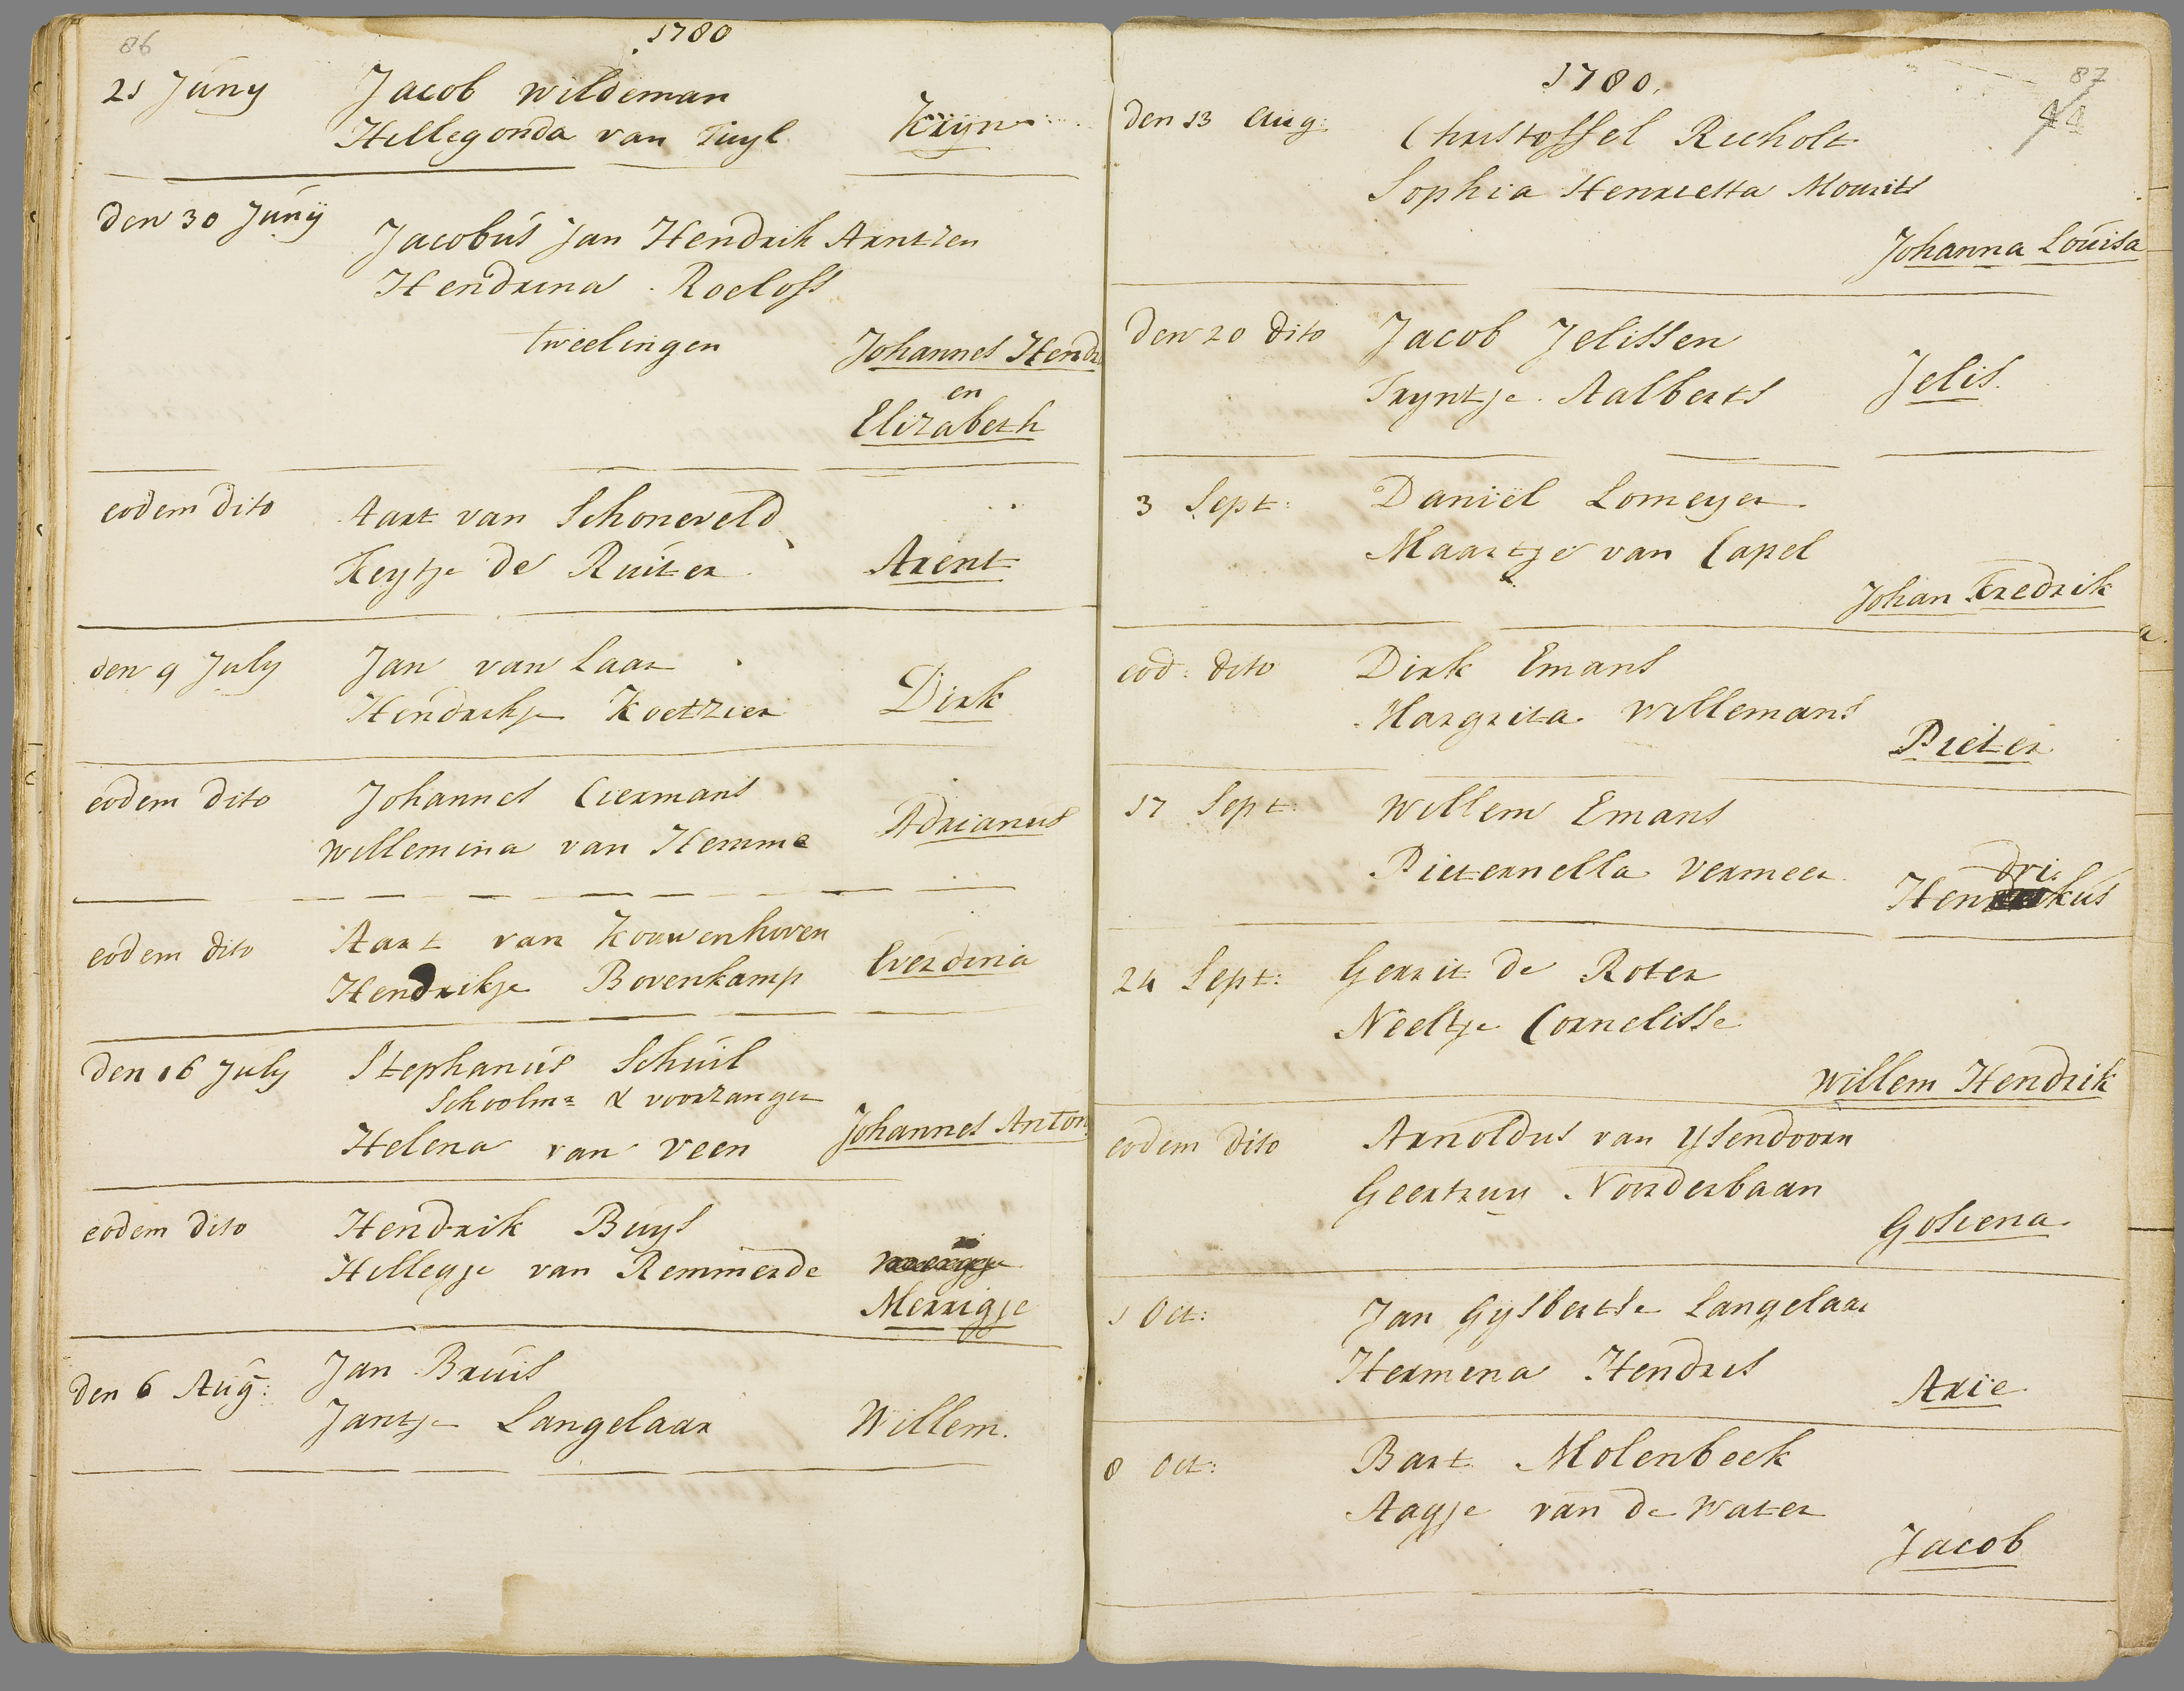 86
1780
21 Juny
Jacob Wildeman
Hillegonda van Tuyl
Krijn
den 30 Junij
Jacobus Jan Hendrik Arntzen
Hendrina Roeloss
tweelingen
Johannes Hendr
en
Elizabeth
eodem dito
Aart van Schoneveld
Keytje de Ruiter
Arent
den 9 July
Jan van Laar
Hendrikje Koetzier
Dirk
eodem dito
Johannes Ciermans
Willemina van Hemme
Adrianus
eodem dito
Aart van Kouwenhoven
Hendrikje Bovenkamp
Everdina
den 16 July
Stephanus Schuil
Schoolmr & voorzanger
Helena van Veen
Johannes Anton
eodem dito
Hendrik Buys
Hillegje van Remmerde
Merrigje
den 6 Aug:
Jan Bruis
Jantje Langelaar
Willem.
87
44
1780.
den 13 Aug:
Christoffel Richolt
Sophia Henrietta Mourits
Johanna Louisa
den 20 dito
Jacob Jelissen
Tryntje Aalberts
Jelis.
3 Sept:
Daniël Lomeyer
Maartje van Capel
Johan Fredrik
eod: dito
Dirk Emans
Margrita Willemans
Pieter
17 Sept:
Willem Emans
Pieternella Vermeer
Hendrikus
24 Sept:
Gerrit de Roter
Neeltje Cornelisse
Willem Hendrik
eodem dito
Arnoldus van Ysendoorn
Geertruy Noorderbaan
Gosiena.
1 Oct:
Jan Gysbertse Langelaar
Hermina Hendris
Arie
8 Oct:
Bart Molenbeek
Aagje van de Water
Jacob